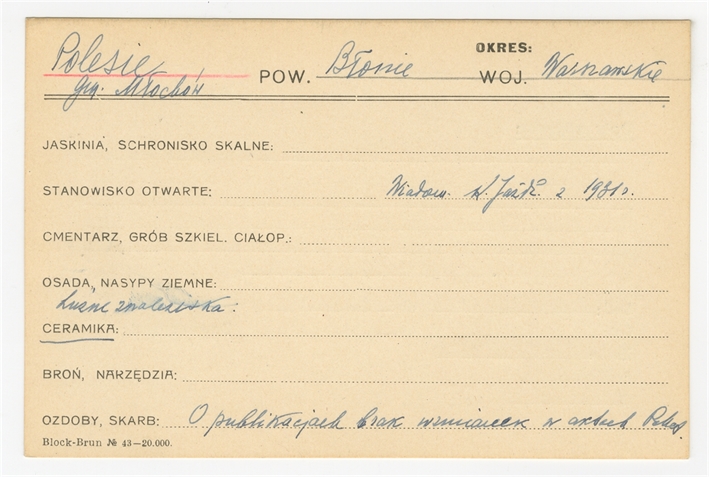 OKRES:
Polesie POW. Błonie WOJ. Warszawskie
gm. Młochów
JASKINIA, SCHRONISKO SKALNE:
STANOWISKO OTWARTE: Wiadom. z 1931 r.
CMENTARZ, GRÓB SZKIEL. CIAŁOP.:
OSADA, NASYPY ZIEMNE:
Luźne znaleziska:
CERAMIKA:
BROŃ, NARZĘDZIA:
OZDOBY, SKARB: O publikacjach brak wzmianek w aktach
Block-Brun № 43—20.000.